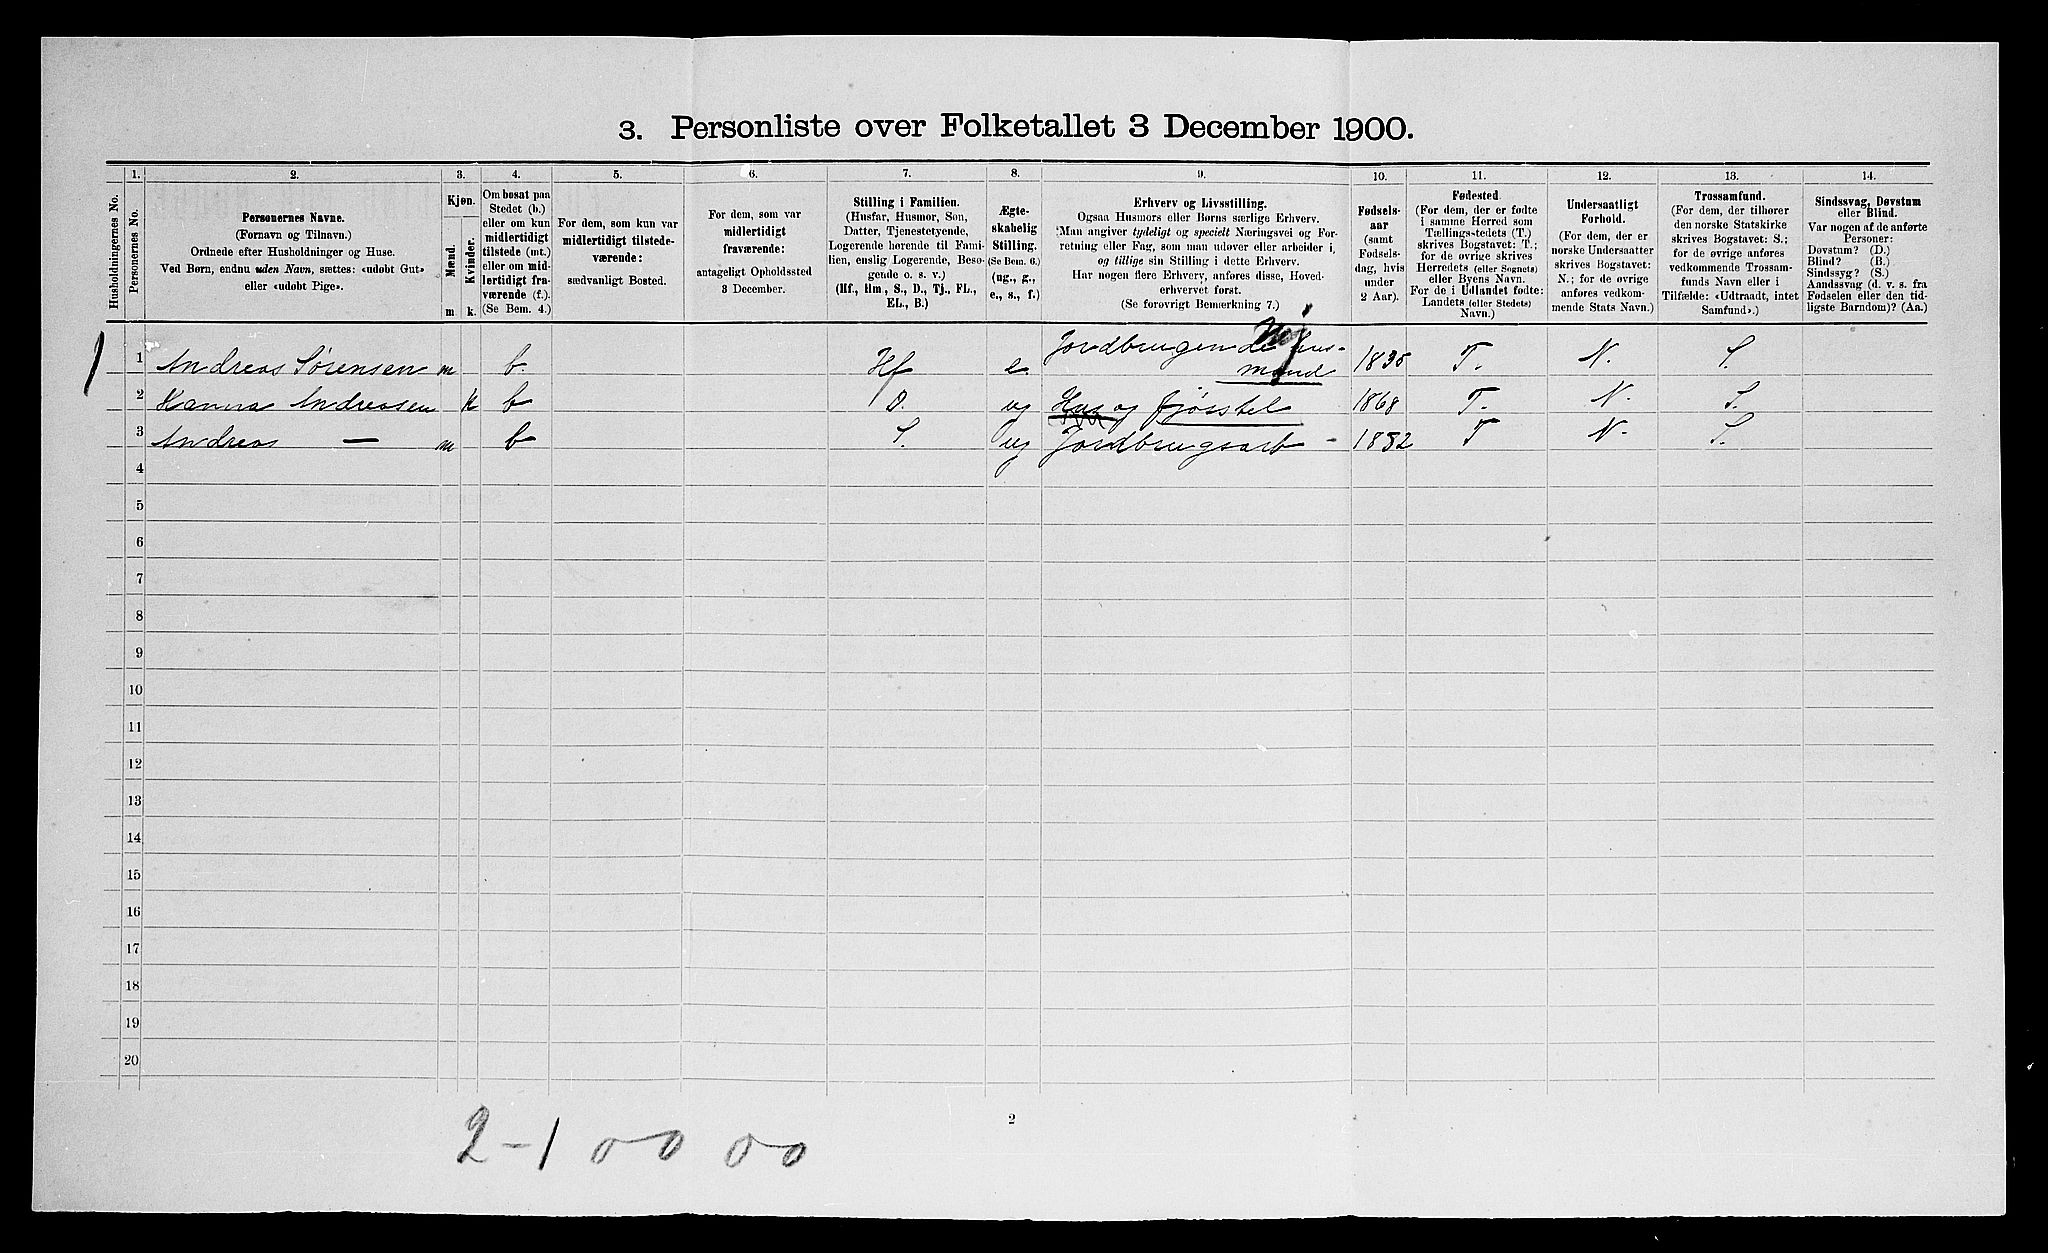 3. Personliste over Folketallet 3 December 1900.
Husholdningernes No.
1.
Personernes No.
2.
Personernes Navne.
(Fornavn og Tilnavn.)
Ordnede efter Husholdninger og Huse.
Ved Børn, endnu uden Navn, sættes: «udøbt Gut»
eller «udøbt Pige».
3.
Kjøn.
Mænd.
Kvinder.
m
k.
4.
Om bosat paa
Stedet (b.)
eller om kun
midlertidigt
tilstede (mt.)
eller om mid-
lertidigt fra-
værende (f.).
(Se Bem. 4.)
5.
For dem, som kun var
midlertidigt tilstede-
værende:
sædvanligt Bosted.
6.
For dem, som var
midlertidigt
fraværende:
antageligt Opholdssted
3 December.
7.
Stilling i Familien.
(Husfar, Husmor, Søn,
Datter, Tjenestetyende,
Logerende hørende til Fami-
lien, enslig Logerende, Besø-
gende o. s. v.)
(Hf., Hm., S., D., Tj., FL.,
EL., B.)
8.
Ægte-
skabelig
Stilling.
(Se Bem. 6.)
(ug., g.,
e., s., f.)
9.
Erhverv og Livsstilling.
Ogsaa Husmors eller Børns særlige Erhverv.
Man angiver tydeligt og specielt Næringsvei og For-
retning eller Fag, som man udøver eller arbeider i,
og tillige sin Stilling i dette Erhverv.
Har nogen flere Erhverv, anføres disse, Hoved-
erhvervet først.
(Se forøvrigt Bemærkning 7.)
10.
Fødsels-
aar
(samt
Fødsels-
dag, hvis
under
2 Aar).
11.
Fødested.
(For dem, der er fødte
i samme Herred som
Tællingsstedets (T.)
skrives Bogstavet: T.;
for de øvrige skrives
Herredets (eller Sognets)
eller Byens Navn.
For de i Udlandet fødte:
Landets (eller Stedets)
Navn.)
12.
Undersaatligt
Forhold.
(For dem, der er
norske Undersaatter
skrives Bogstavet:
N.; for de øvrige
anføres vedkom-
mende Stats Navn.)
13.
Trossamfund.
(For dem, der tilhører
den norske Statskirke
skrives Bogstavet: S.;
for de øvrige anføres
vedkommende Trossam-
funds Navn eller i
Tilfælde: «Udtraadt, intet
Samfund».)
14.
Sindssvag, Døvstum
eller Blind.
Var nogen af de anførte
Personer:
Døvstum? (D.)
Blind? (B.)
Sindssyg? (S.)
Aandssvag (d. v. s. fra
Fødselen eller den tid-
ligste Barndom)? (Aa.)
1 1 Andreas Sørensen m b. Hf e. Jordbrugende hus-
mand 1835 T. N. S.
2 Hanna Andreasen k b D. ug Hus og fjøsstel 1868 T. N. S.
3 Andreas — m b S. ug Jordbrugsarb - 1882 T N. S.
4
5
6
7
8
9
10
11
12
13
14
15
16
17
18
19
20
2
2-1 00 00